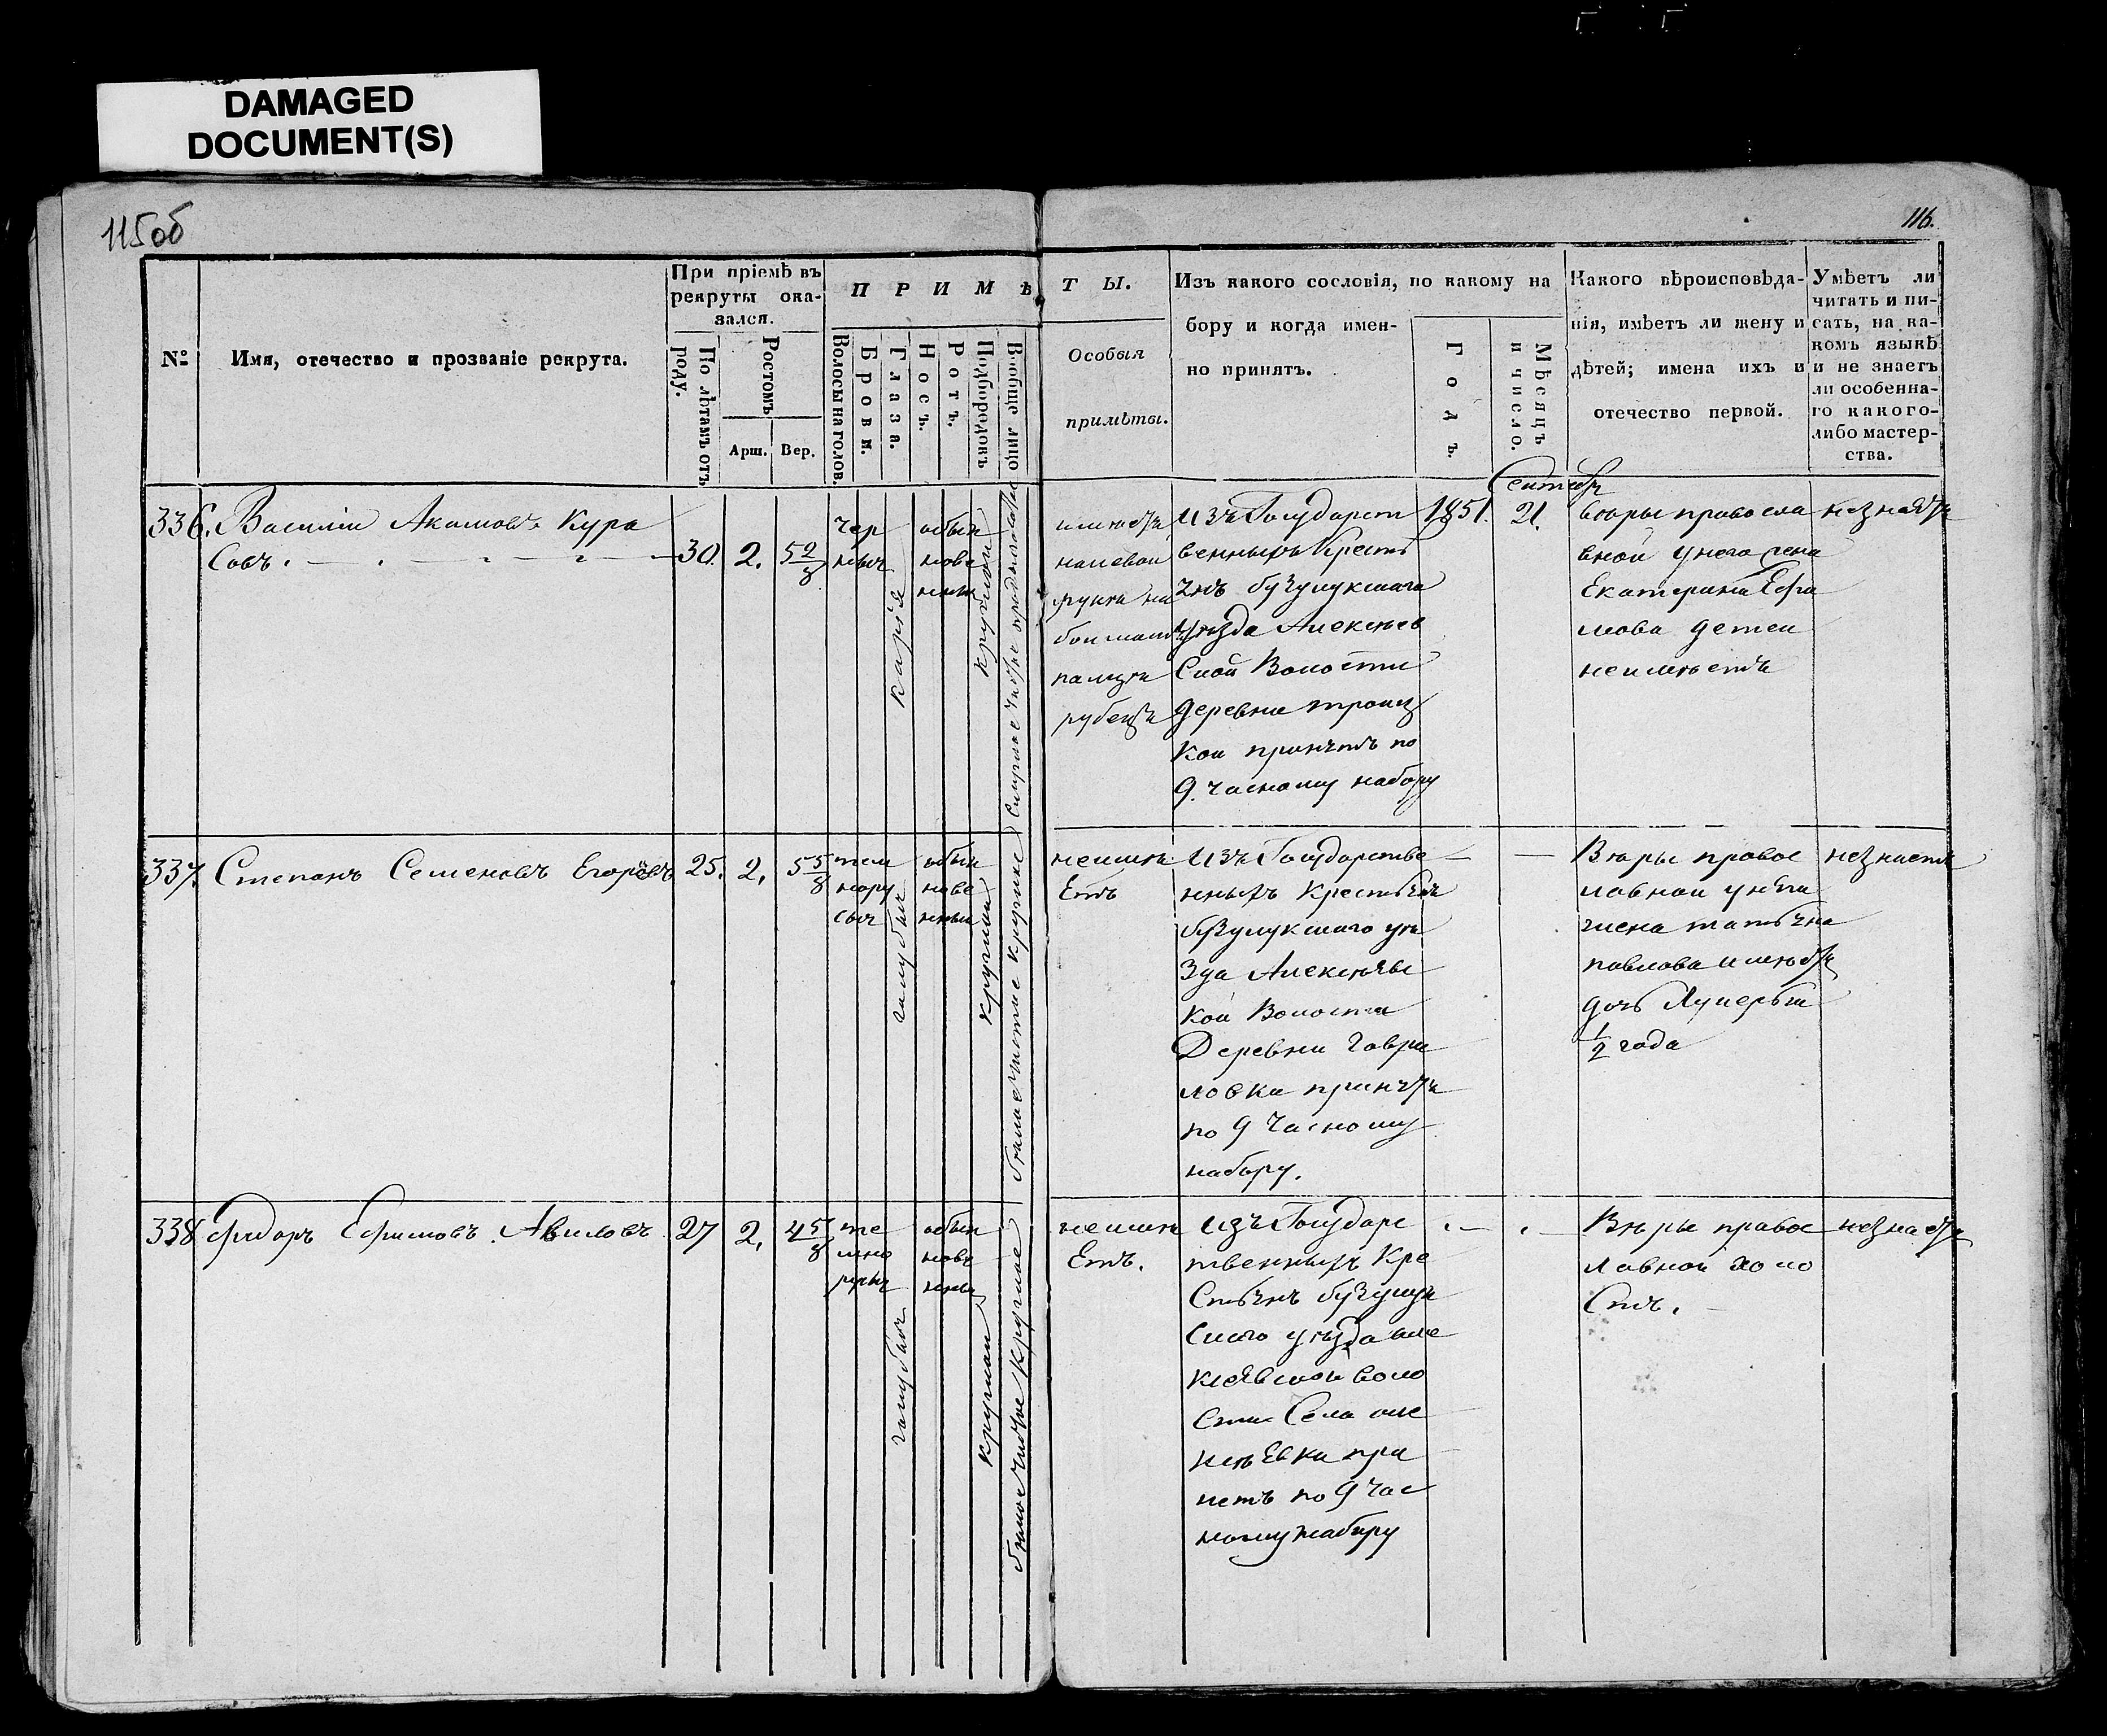 DAMAGED
DOCUMENT(S)
115об
116.
№
Имя, отечество и прозваніе рекрута.
При пріемѣ въ
рекруты ока-
зался.
По лѣтамъ отъ
роду.
Ростомъ
Арш.
Вер.
ПРИМѢ
Волосы на голов.
Брови.
Глаза.
Носъ.
Ротъ.
Подбородокъ
Вообще лицо
ТЫ.
Особыя
примѣты.
Изъ какого сословія, по какому на
бору и когда имен-
но принятъ.
Годъ.
Мѣсяцъ
и число.
Какого вѣроисповѣда-
нія, имѣетъ ли жену и
дѣтей; имена ихъ и
отечество первой.
Умѣетъ ли
читать и пи-
сать, на ка-
комъ языкѣ
и не знаетъ
ли особенна-
го какого-
либо мастер-
ства.
336.
Василіи Акимовъ Кура
Совъ.
30.
2.
5 2/8
чер
ныя
каріе
обык
нове
нны
круглои
имѣетъ
на левои
руки на
болшомъ
палцѣ
рубецъ
Изъ Государст
венныхъ Кресть
янъ бузулукскаго
уѣзда Алексѣев
Ской Волости
деревни троиц
Кои принятъ по
9. часному набору
1851.
Сентябр
21.
вѣры правосла
вной у него жена
Екатерина Ефи
мова детеи
неимѣетъ
незнаетъ
337.
Степанъ Семеновъ Егоровъ
25.
2.
5 5/8
тем
нору
сыя
голубыя
обык
нове
нныи
круглои
неимѣ
Етъ
Изъ Государстве
нныхъ Крестьян
бузулукскаго уѣ
Зда Алексѣевс
Кои Волости
Деревни Гаври
ловки принятъ
по 9 Часному
набору.
Вѣры правос
лавнои у него
жена татьяна
павлова имѣетъ
дочь Лукерью
1/2 года
незнаетъ
338
Фидоръ Ефимовъ Авиловъ
27
2.
4 5/8
те
мно
русыя
голубыя
обык
нове
нны
круглои
белое чистое круглое
неимѣ
Етъ.
Изъ Государс
твенныхъ Кре
Стьянъ бузулук
Скаго уѣзда але
ксѣевскои воло
сти Села але
ксѣЕвки при
нетъ по 9 Час
ному набору
Вѣры правос
лавной холо
Стъ.
незнаетъ